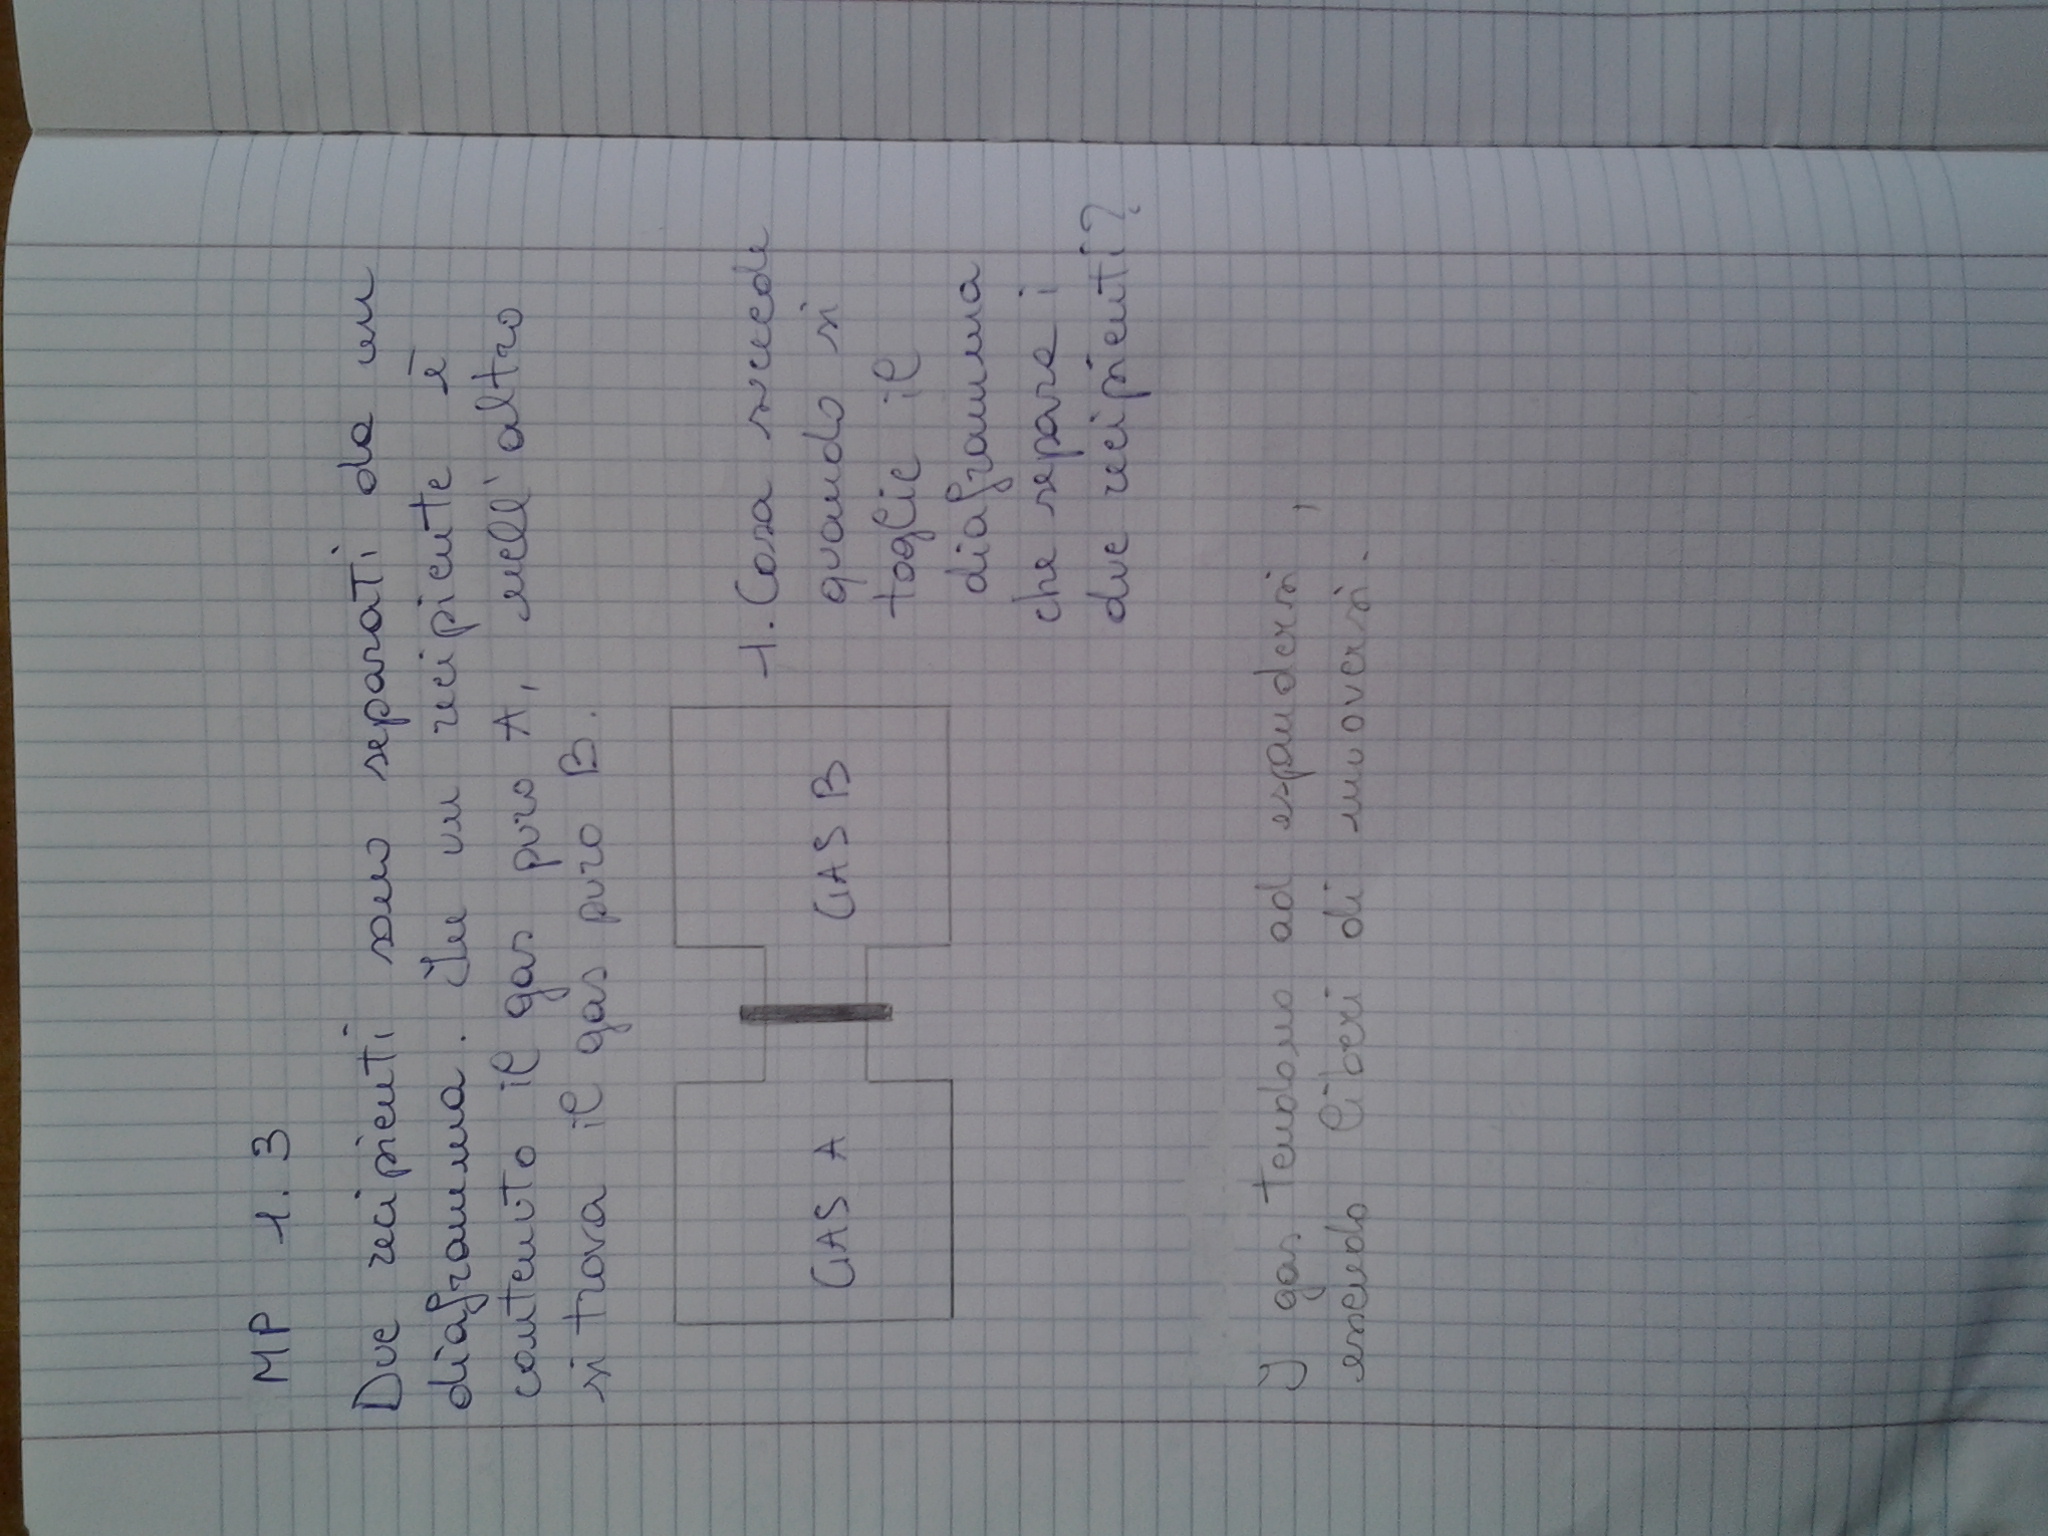 MP 1.3
Due recipienti sono separati da un
diaframma. In un recipiente è
contenuto il gas puro A, nell'altro
si trova il gas puro B.
GAS A
GAS B
1. Cosa succede
quando si
toglie il
diaframma
che separa i
due recipienti?
I gas tendono ad espandersi,
essendo liberi di muoversi.